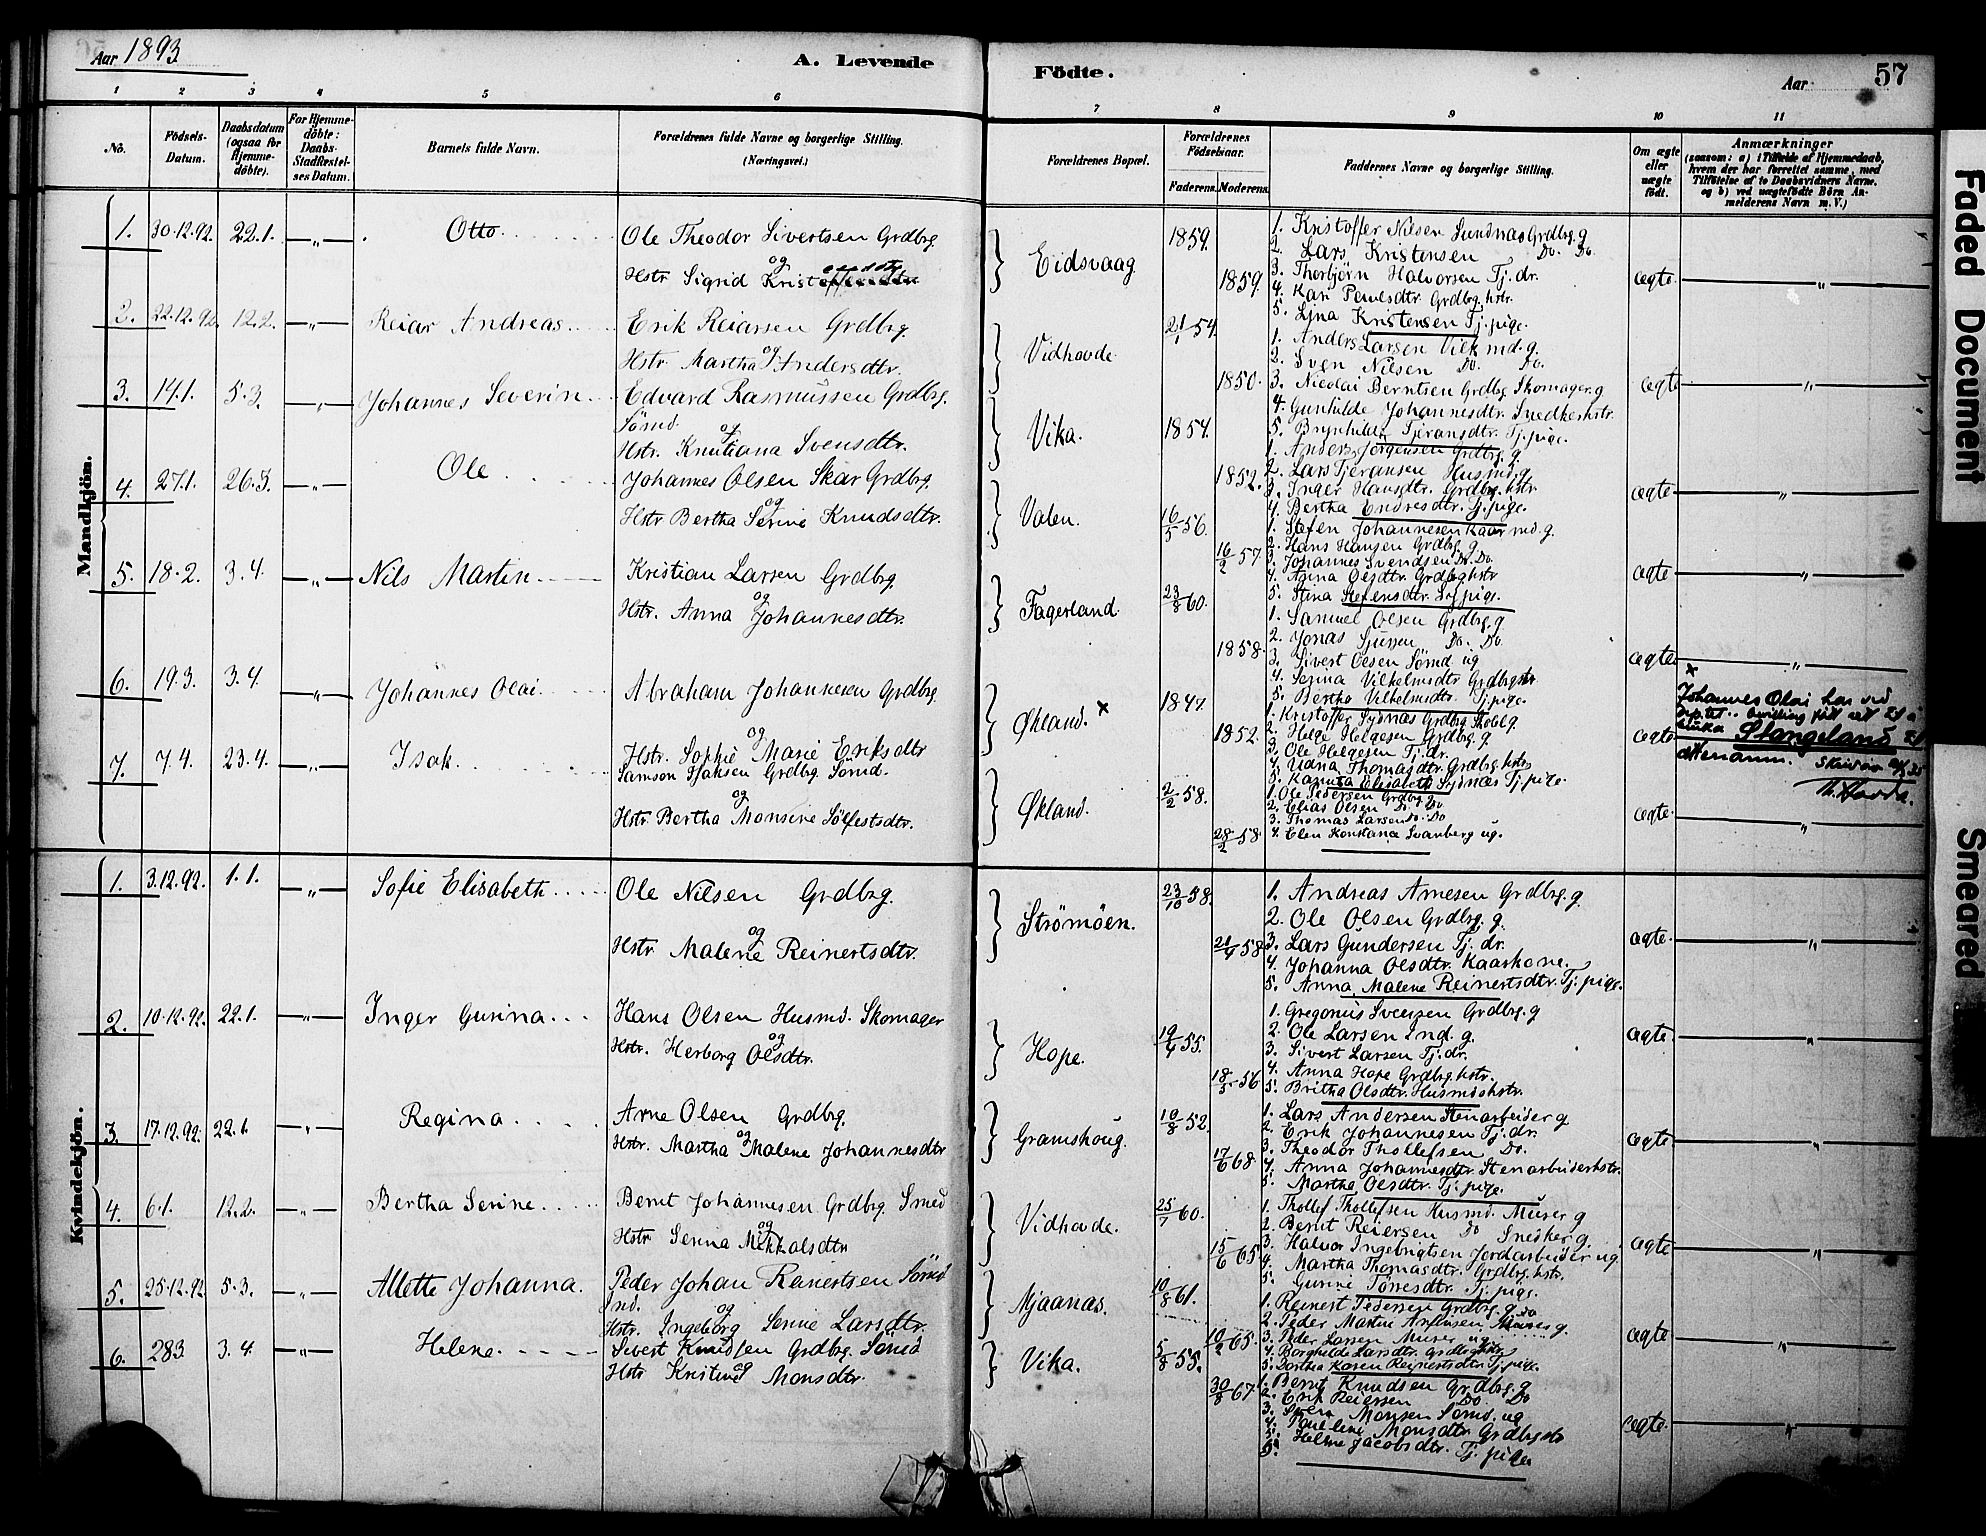 Aar 1893
A. Levende
Födte.
Aar
57
1 2 3 4 5 6 7 8 9 10 11
No.
Födsels-
Datum.
Daabsdatum
(ogsaa for
Hjemme-
döbte).
For Hjemme-
döbte:
Daabs-
Stadfæstel-
ses Datum.
Barnets fulde Navn.
Forældrenes fulde Navne og borgerlige Stilling.
(Næringsvei.)
Forældrenes Bopæl.
Forældrenes
Födselsaar.
Faderens. Moderens.
Faddernes Navne og borgerlige Stilling.
Om ægte
eller
uægte
födt.
Anmærkninger
(saasom: a) i Tilfælde af Hjemmedaab,
hvem der har forrettet samme, med
Tilföielse af to Daabsvidners Navne,
og b) ved uægtefödte Börn An-
melderens Navn m. V.)
Mandkjön.
1. 30.12.92. 22.1. —„— Otto
Ole Theodor Sivertsen Grdbrg.
og
Hstr Sigrid
Eidsvaag 1859. 1859.
1. Kristoffer Nilsen Sundnas Grdbrg. g
2. Lars Kristensen Do. Do.
3. Thorbjörn Halvorsen Tj. dr.
4. Kari Paulsdtr. Grdbrg. hstr.
5. Lina Kristensen Tj. pige.
ægte —„—
2. 22.12.92. 12.2. —„— Reiar Andreas
Erik Reiarsen Grdbrg.
og
Hstr. Martha Andersdtr.
Vidhovde 21/1 54. 1850.
1. Anders Larsen Vik md. g.
2. Sven Nilsen Do. Do.
3. Nicolai Berntsen Grdbrg. Skomager. g
4. Gunhilde Johannesdtr. Snedkerhstr.
5. Brynhilde Tjeransdtr. Tj. pige.
ægte —„—
3. 14.1. 5.3. —„— Johannes Severin
Edvard Rasmussen Grdbrg.
Sömd.
og
Hstr. Knutiana Svensdtr.
Vika. 1854. 1852.
1. Anders Jörgensen Grdbrg. g
2. Lars Tjeransen Husmd. g
3. Inger Hansdtr. Grdbrg. hstr.
4. Bertha Endresdtr. Tj. pige.
ægte —„—
4. 27.1. 26.3. —„— Ole
Johannes Olsen Skar Grdbrg.
og
Hstr Bertha Serine Knudsdtr.
Valen. 16/5 56. 16/2 57.
1. Stefen Johannesen Kaarmd. g.
2. Hans Hansen Grdbrg. g
3. Johannes Svendsen Do. Do
4. Anna Olsdtr. Grdbrg hstr
5. Stina Stefensdtr. Tj. pige.
ægte —„—
5. 18.2. 3.4. —„— Nils Martin
Kristian Larsen Grdbrg.
og
Hstr. Anna Johannesdtr.
Fagerland. 23/8 60. 1858.
1. Samuel Olsen Grdbrg. g
2. Jonas Sjursen Do. Do
3. Sivert Olsen Sömd ug
4. Serina Vilhelmsdtr Grdbrghstr
5. Bertha Vilhelmsdtr. Tj. pige.
ægte —„—
6. 19.3. 3.4. —„— Johannes Olai
Abraham Johannesen Grdbrg.
og
Hstr. Sophie Marie Eriksdtr
Økland. × 1847. 1852.
1. Kristoffer Sydnæs Grdbrg
2. Helge Helgesen Grdbrg. g
3. Ole Helgesen Tj. dr.
4. Udna Thomasdtr. Grdbrg. hstr
5. Kanuta Elisabeth Sydnæs Tj. pige.
ægte
×
Johannes Olai har ved
bruka Stangeland til
ettenamn.
7. 7.4. 23.4. —„— Isak
Samson Isaksen Grdbrg. Sömd.
og
Hstr Bertha Monsine Sölfestsdtr.
Økland. 2/2 58. 28/2 58
1. Ole Pedersen Grdbrg.
2. Elias Olsen Do. Do
3. Thomas Larsen Do. Do
4. Elen Konstana Svanberg ug.
ægte —„—
Kvindekjön.
1. 3.12.92. 1.1. —„— Sofie Elisabeth
Ole Nilsen Grdbrg.
og
Hstr Malene Reinertsdtr.
Strömöen. 23/10 58. 21/4 58
1. Andreas Arnesen Grdbrg. g.
2. Ole Olsen Grdbrg. g.
3. Lars Gundersen Tj. dr.
4. Johanna Olsdtr. Kaarkone.
5. Anna Malene Reinertsdtr. Tj. pige.
ægte —„—
2. 10.12.92. 22.1. —„— Inger Gurina
Hans Olsen Husmd. Skomager
og
Hstr. Herborg Olsdtr.
Hope. 19/4 55. 18/5 56
1. Gregorius Svensen Grdbrg. g
2. Ole Larsen Ind. g.
3. Sivert Larsen Tj. dr.
4. Anna Hope Grdbrg. hstr.
5. Britha Olsdtr. Husmdshstr.
ægte —„—
3. 17.12.92. 22.1. —„— Regina
Arne Olsen Grdbrg.
og
Hstr. Martha Malene Johannesdtr
Gramshoug. 10/8 52. 17/6 68.
1. Lars Andersen Stenarbeider g
2. Erik Johannesen Tj. dr.
3. Theodor Thollefsen Do.
4. Anna Johannesdtr. Stenarbeiderhstr.
5. Martha Olsdtr. Tj. pige.
ægte —„—
4. 6.1. 12.2. —„— Bertha Serine
Bernt Johannesen Grdbrg. Smed
og
Hstr Serina Mikkalsdtr
Vidhovde. 25/7 60. 15/6 65
1. Thollef Thollefsen Husmd. Murer g
2. Bernt Reiersen Do Snedker g.
3. Halvor Ingebrigtsen Jordarbeider ug.
4. Martha Thomasdtr. Grdbrg. hstr.
5. Gurine Tönesdtr. Tj. pige.
ægte —„—
5. 25.12.92 5.3. —„— Allette Johanna.
Peder Johan Reinertsen Sömd
Ind.
og
Hstr. Ingeborg Serine Larsdtr.
Mjaanas. 10/8 61. 10/2 65.
1. Reinert Pedersen Grdbrg. g. Do
2. Peder Martin Murer g.
3. Peder Larsen Murer ug.
4. Borghilde Larsdtr. Grdbrghstr
5. Dorthea Karen Reinertsdtr. Tj. pige.
ægte —„—
6. 283 3.4. —„— Helene
Sivert Knudsen Grdbrg. Sömd
og
Hstr Kristine Monsdtr.
Vika. 5/8 55. 30/8 67.
1. Bernt Knudsen Grdbrg. g
2. Erik Reiersen Do. Do
3. Sven Monsen Sömd. ug
4. Pauline Monsdtr Grdbrghstr
5. Helene Jacobsdtr. Tj. pige
ægte —„—
Faded Document
Smeared